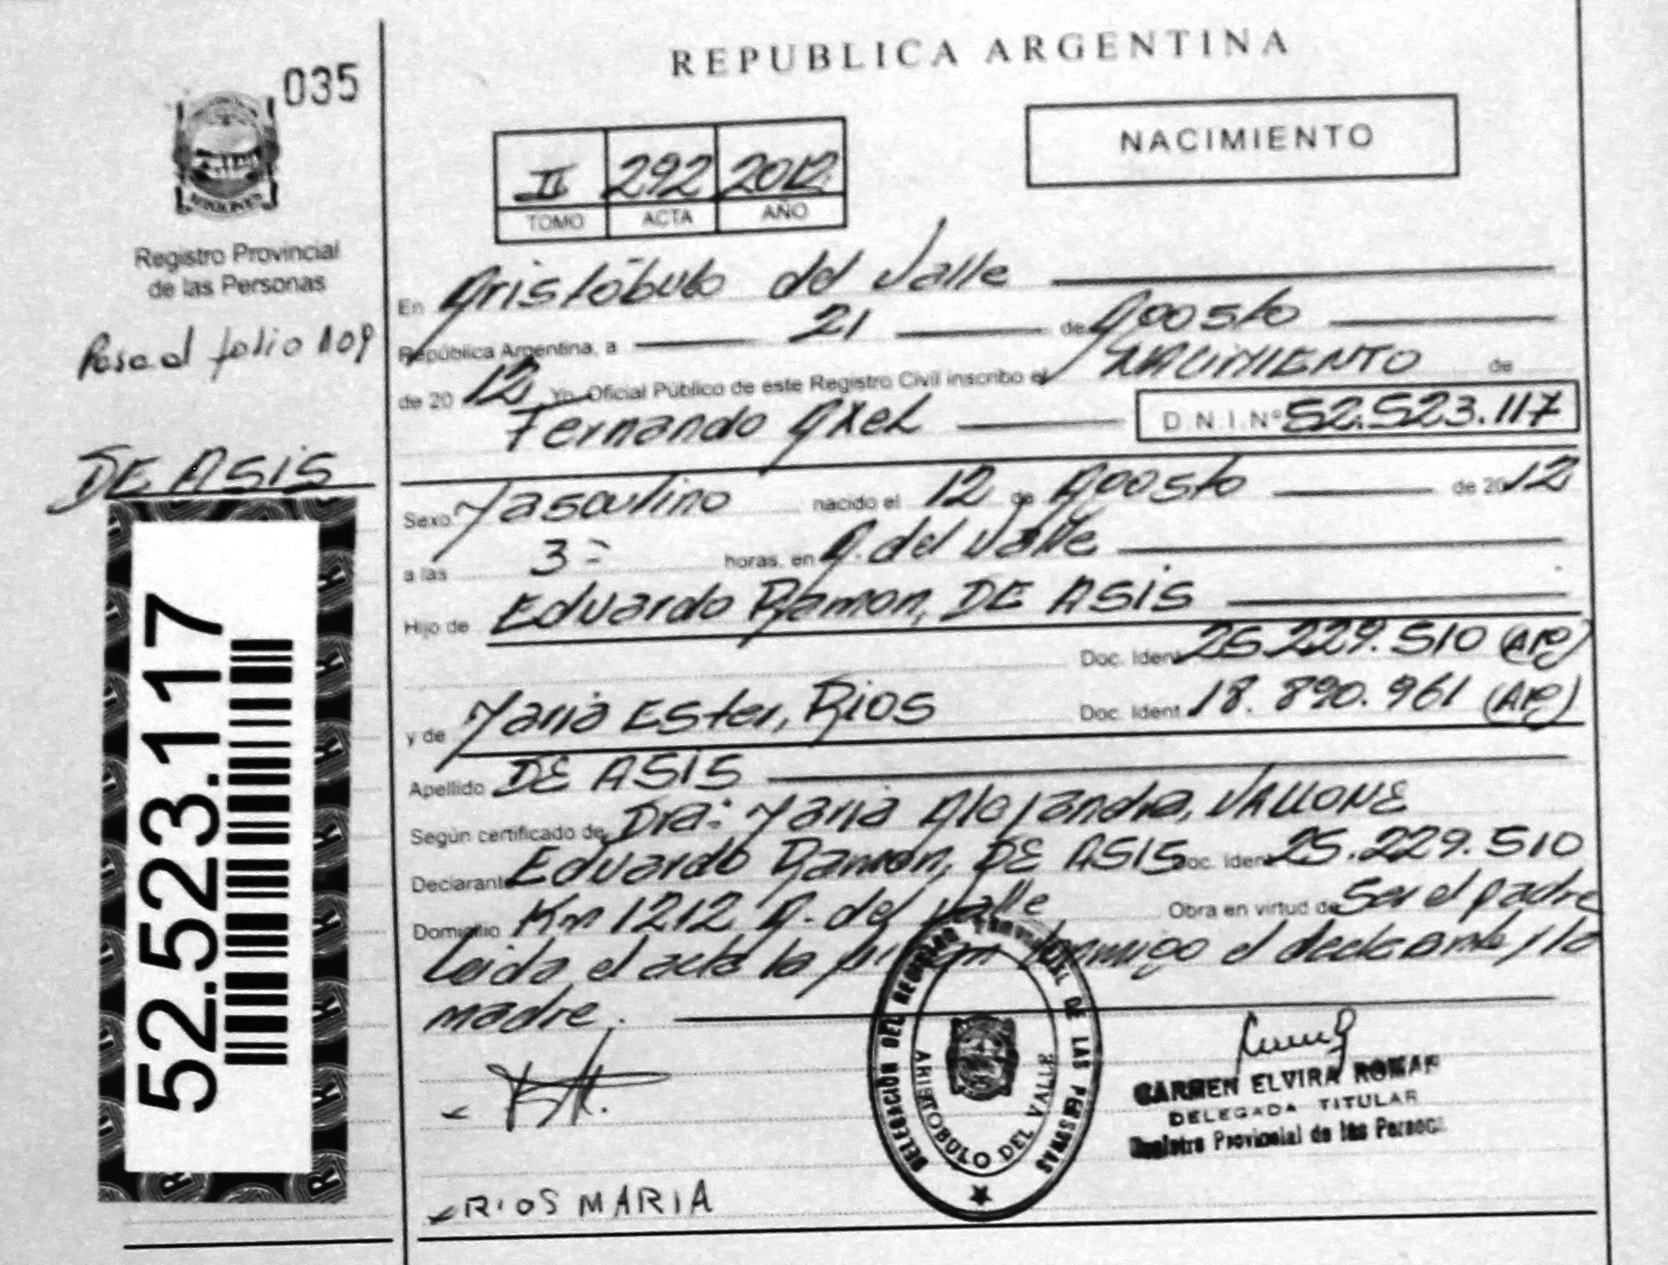 035
REPUBLICA ARGENTINA
NACIMIENTO
II 292 2012
TOMO ACTA AÑO
MISIONES
Registro Provincial
de las Personas
Pasa al folio 109
DE ASIS
52.523.117
En Aristóbulo del Valle
República Argentina, a 21 de Agosto
de 2012 Yo, Oficial Público de este Registro Civil inscribo el NACIMIENTO de
Fernando Axel D.N.I.Nº 52.523.117
Sexo Masculino nacido el 12 de Agosto de 2012
a las 3 horas, en A. del Valle
Hijo de Eduardo Ramon, DE ASIS
Doc. Ident 25.229.510 (AR)
y de Maria Ester, Rios Doc. Ident 18.890.961 (AR)
Apellido DE ASIS
Según certificado de Dra: Maria Alejandra, VALLONE
Declarante Eduardo Ramon, DE ASIS Doc. Ident 25.229.510
Domicilio Km 1212 A. del Valle Obra en virtud de Ser el padre
Leida el acta la firman conmigo el declarante y la
madre.
DELEGACIÓN DEL REGISTRO PROVINCIAL DE LAS PERSONAS
ARISTOBULO DEL VALLE
CARMEN ELVIRA ROMAN
DELEGADA TITULAR
Registro Provincial de las Personas
RIOS MARIA